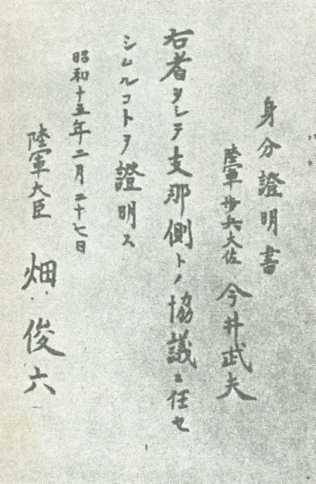 身分證明書
陸軍歩兵大佐 今井武夫
右者ヲシテ支那側トノ協議ニ任セ
シムルコトヲ證明ス
昭和十五年二月二十七日
陸軍大臣 畑俊六